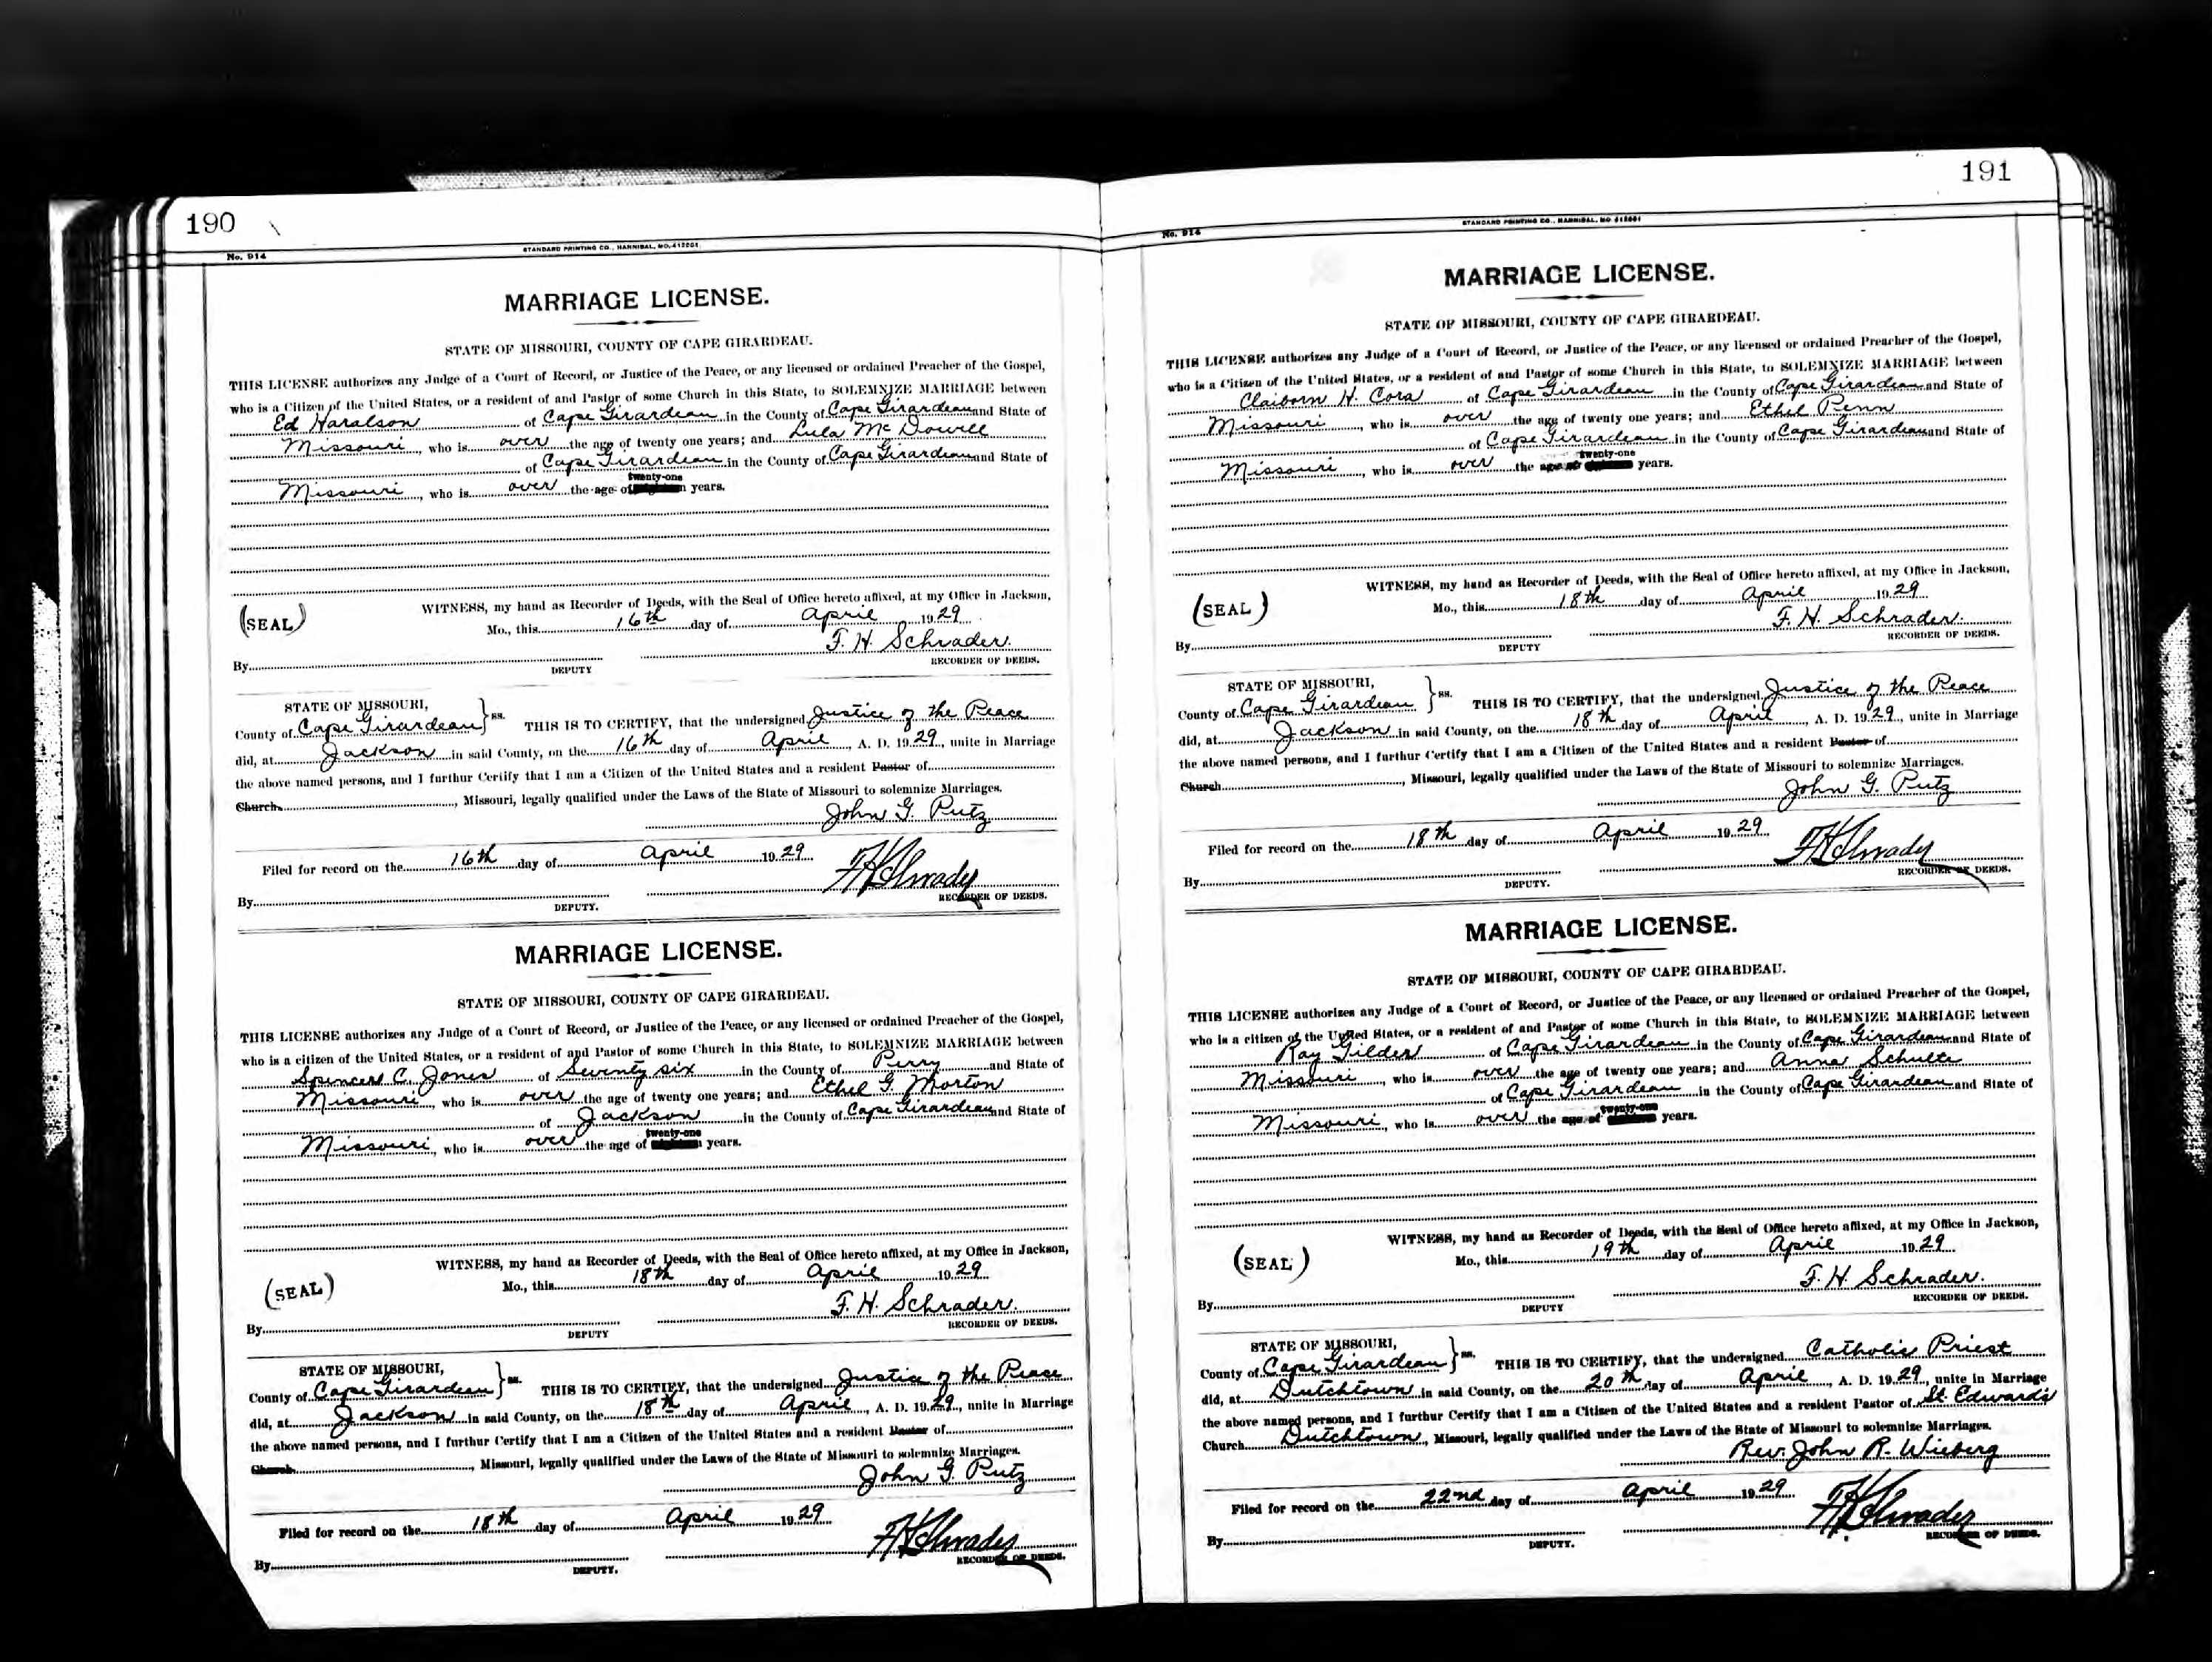 190
No. 914
STANDARD PRINTING CO., HANNIBAL, MO.
MARRIAGE LICENSE.
STATE OF MISSOURI, COUNTY OF CAPE GIRARDEAU.
THIS LICENSE authorizes any Judge of a Court of Record, or Justice of the Peace, or any licensed or ordained Preacher of the Gospel,
who is a Citizen of the United States, or a resident of and Pastor of some Church in this State, to SOLEMNIZE MARRIAGE between
Ed Haralson of Cape Girardeau in the County of Cape Girardeau and State of
Missouri, who is over the age of twenty one years; and Lula McDowell
of Cape Girardeau in the County of Cape Girardeau and State of
Missouri, who is over the age of twenty-one years.
(SEAL)
WITNESS, my hand as Recorder of Deeds, with the Seal of Office hereto affixed, at my Office in Jackson,
Mo., this 16th day of April 1929
F. H. Schrader.
By DEPUTY RECORDER OF DEEDS.
STATE OF MISSOURI,
County of Cape Girardeau } ss. THIS IS TO CERTIFY, that the undersigned Justice of the Peace
did, at Jackson in said County, on the 16th day of April, A. D. 1929, unite in Marriage
the above named persons, and I furthur Certify that I am a Citizen of the United States and a resident Pastor of
Church, Missouri, legally qualified under the Laws of the State of Missouri to solemnize Marriages.
John G. Putz
Filed for record on the 16th day of April 1929
FHSchrader
By DEPUTY. RECORDER OF DEEDS.
MARRIAGE LICENSE.
STATE OF MISSOURI, COUNTY OF CAPE GIRARDEAU.
THIS LICENSE authorizes any Judge of a Court of Record, or Justice of the Peace, or any licensed or ordained Preacher of the Gospel,
who is a citizen of the United States, or a resident of and Pastor of some Church in this State, to SOLEMNIZE MARRIAGE between
Spencer C. Jones of Seventy six in the County of Perry and State of
Missouri, who is over the age of twenty one years; and Ethel G. Morton
of Jackson in the County of Cape Girardeau and State of
Missouri, who is over the age of twenty-one years.
(SEAL)
WITNESS, my hand as Recorder of Deeds, with the Seal of Office hereto affixed, at my Office in Jackson,
Mo., this 18th day of April 1929
F. H. Schrader.
By DEPUTY RECORDER OF DEEDS.
STATE OF MISSOURI,
County of Cape Girardeau } ss. THIS IS TO CERTIFY, that the undersigned Justice of the Peace
did, at Jackson in said County, on the 18th day of April, A. D. 1929, unite in Marriage
the above named persons, and I furthur Certify that I am a Citizen of the United States and a resident Pastor of
Church, Missouri, legally qualified under the Laws of the State of Missouri to solemnize Marriages.
John G. Putz
Filed for record on the 18th day of April 1929
FHSchrader
By DEPUTY. RECORDER OF DEEDS.
191
No. 914
STANDARD PRINTING CO., HANNIBAL, MO
MARRIAGE LICENSE.
STATE OF MISSOURI, COUNTY OF CAPE GIRARDEAU.
THIS LICENSE authorizes any Judge of a Court of Record, or Justice of the Peace, or any licensed or ordained Preacher of the Gospel,
who is a Citizen of the United States, or a resident of and Pastor of some Church in this State, to SOLEMNIZE MARRIAGE between
Claiborn H. Cora of Cape Girardeau in the County of Cape Girardeau and State of
Missouri, who is over the age of twenty one years; and Ethel Penn
of Cape Girardeau in the County of Cape Girardeau and State of
Missouri, who is over the age of twenty-one years.
(SEAL)
WITNESS, my hand as Recorder of Deeds, with the Seal of Office hereto affixed, at my Office in Jackson,
Mo., this 18th day of April 1929
F. H. Schrader.
By DEPUTY RECORDER OF DEEDS.
STATE OF MISSOURI,
County of Cape Girardeau } ss. THIS IS TO CERTIFY, that the undersigned Justice of the Peace
did, at Jackson in said County, on the 18th day of April, A. D. 1929, unite in Marriage
the above named persons, and I furthur Certify that I am a Citizen of the United States and a resident Pastor of
Church, Missouri, legally qualified under the Laws of the State of Missouri to solemnize Marriages.
John G. Putz
Filed for record on the 18th day of April 1929
FHSchrader
By DEPUTY. RECORDER OF DEEDS.
MARRIAGE LICENSE.
STATE OF MISSOURI, COUNTY OF CAPE GIRARDEAU.
THIS LICENSE authorizes any Judge of a Court of Record, or Justice of the Peace, or any licensed or ordained Preacher of the Gospel,
who is a citizen of the United States, or a resident of and Pastor of some Church in this State, to SOLEMNIZE MARRIAGE between
Ray Gilder of Cape Girardeau in the County of Cape Girardeau and State of
Missouri, who is over the age of twenty one years; and Anna Schulte
of Cape Girardeau in the County of Cape Girardeau and State of
Missouri, who is over the age of twenty-one years.
(SEAL)
WITNESS, my hand as Recorder of Deeds, with the Seal of Office hereto affixed, at my Office in Jackson,
Mo., this 19th day of April 1929
F. H. Schrader.
By DEPUTY RECORDER OF DEEDS.
STATE OF MISSOURI,
County of Cape Girardeau } ss. THIS IS TO CERTIFY, that the undersigned Catholic Priest
did, at Dutchtown in said County, on the 20th day of April, A. D. 1929, unite in Marriage
the above named persons, and I furthur Certify that I am a Citizen of the United States and a resident Pastor of St. Edward's
Church Dutchtown, Missouri, legally qualified under the Laws of the State of Missouri to solemnize Marriages.
Rev. John R. Wieberg
Filed for record on the 22nd day of April 1929
FHSchrader
By DEPUTY. RECORDER OF DEEDS.